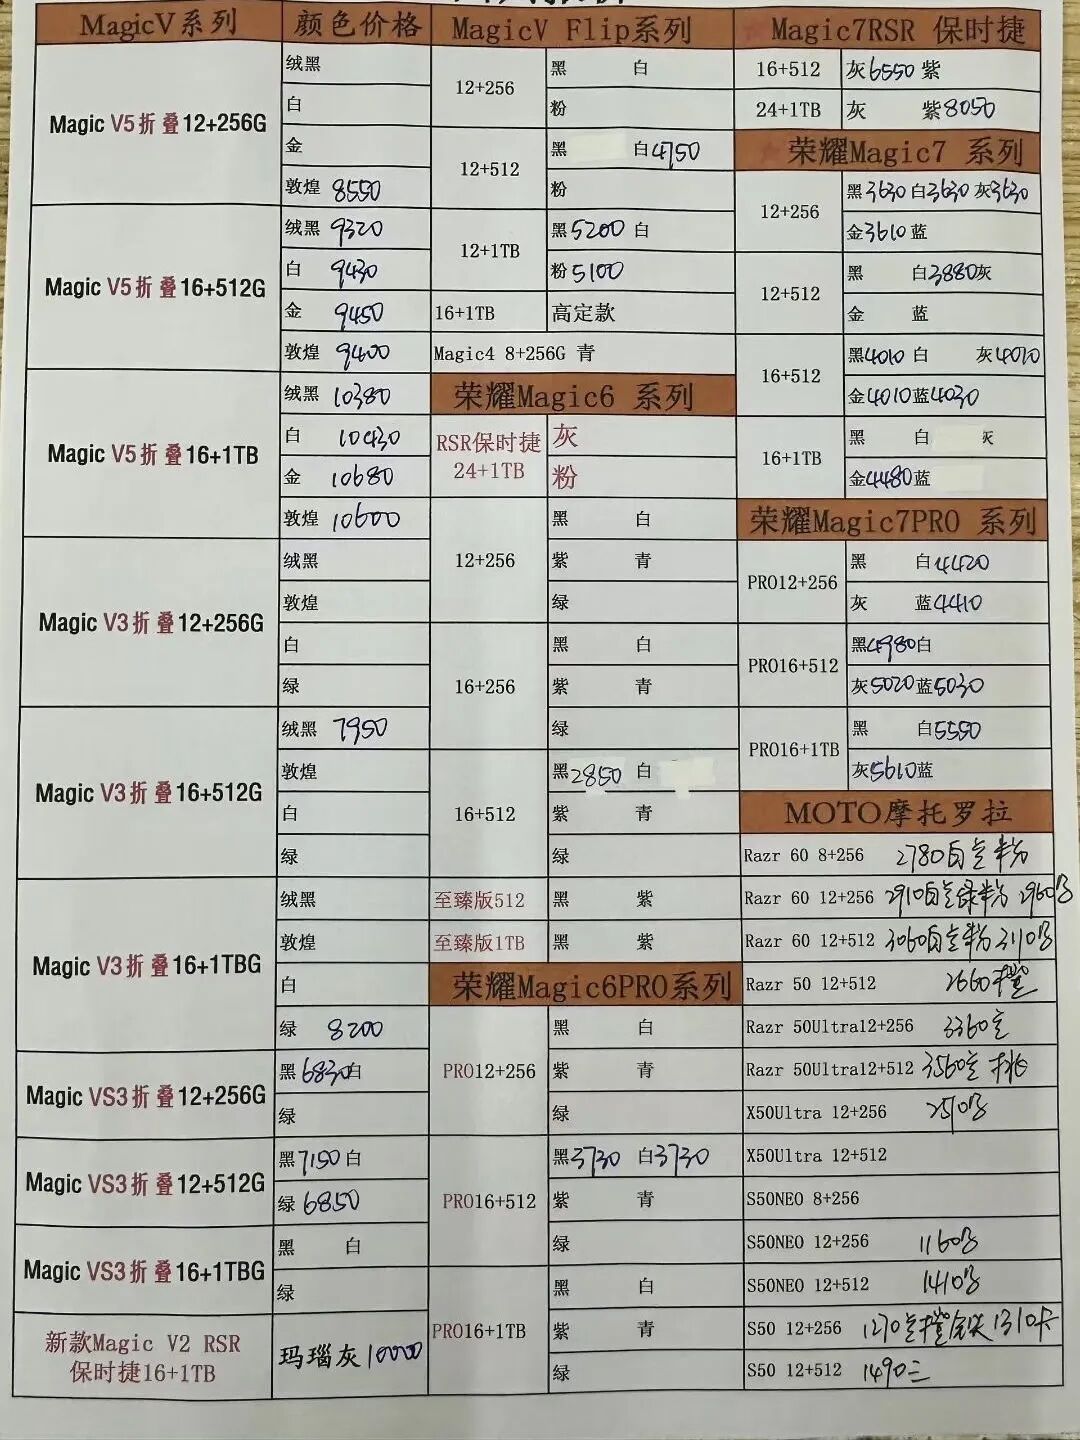 MagicV系列
颜色价格
Magic V5折叠12+256G
绒黑
白
金
敦煌 8550
Magic V5折叠16+512G
绒黑 9320
白 9430
金 9450
敦煌 9400
Magic V5折叠16+1TB
绒黑 10380
白 10430
金 10680
敦煌 10600
Magic V3折叠12+256G
绒黑
敦煌
白
绿
Magic V3折叠16+512G
绒黑 7950
敦煌
白
绿
Magic V3折叠16+1TBG
绒黑
敦煌
白
绿 8200
Magic VS3折叠12+256G
黑6830白
绿
Magic VS3折叠12+512G
黑7150白
绿 6850
Magic VS3折叠16+1TBG
黑 白
绿
新款Magic V2 RSR
保时捷16+1TB
玛瑙灰10000
MagicV Flip系列
12+256
黑 白
粉
12+512
黑 白4750
粉
12+1TB
黑5200 白
粉5100
16+1TB 高定款
Magic4 8+256G 青
荣耀Magic6 系列
RSR保时捷
24+1TB
灰
粉
12+256
黑 白
紫 青
绿
16+256
黑 白
紫 青
绿
16+512
黑2850 白
紫 青
绿
至臻版512 黑 紫
至臻版1TB 黑 紫
荣耀Magic6PRO系列
PRO12+256
黑 白
紫 青
绿
PRO16+512
黑3730 白3730
紫 青
绿
PRO16+1TB
黑 白
紫 青
绿
Magic7RSR 保时捷
16+512 灰6550 紫
24+1TB 灰 紫8050
荣耀Magic7 系列
12+256
黑3630 白3630 灰3630
金3610 蓝
12+512
黑 白3880灰
金 蓝
16+512
黑4010 白 灰4010
金4010蓝4030
16+1TB
黑 白 灰
金4480蓝
荣耀Magic7PRO 系列
PRO12+256
黑 白4420
灰 蓝4410
PRO16+512
黑4980白
灰5020蓝5030
PRO16+1TB
黑 白5550
灰5610蓝
MOTO摩托罗拉
Razr 60 8+256 2780白 粉
Razr 60 12+256 2910白 绿粉 2960
Razr 60 12+512 3060白 粉 3110
Razr 50 12+512 2660橙
Razr 50Ultra12+256 3360
Razr 50Ultra12+512 3560 桃
X50Ultra 12+256 2510
X50Ultra 12+512
S50NEO 8+256
S50NEO 12+256 1160
S50NEO 12+512 1410
S50 12+256 1270 橙 1310
S50 12+512 1490三